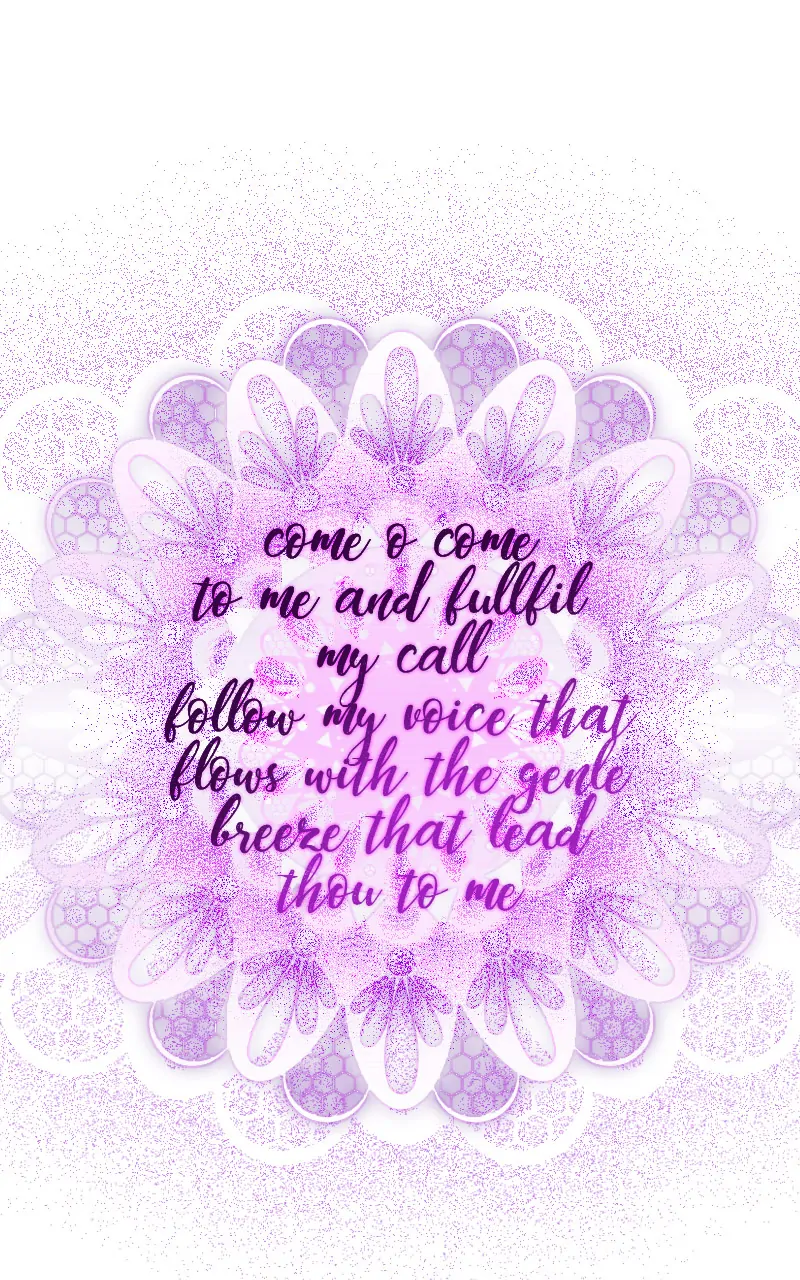 come o come
to me and fullfil
my call
follow my voice that
flows with the genle
breeze that lead
thou to me